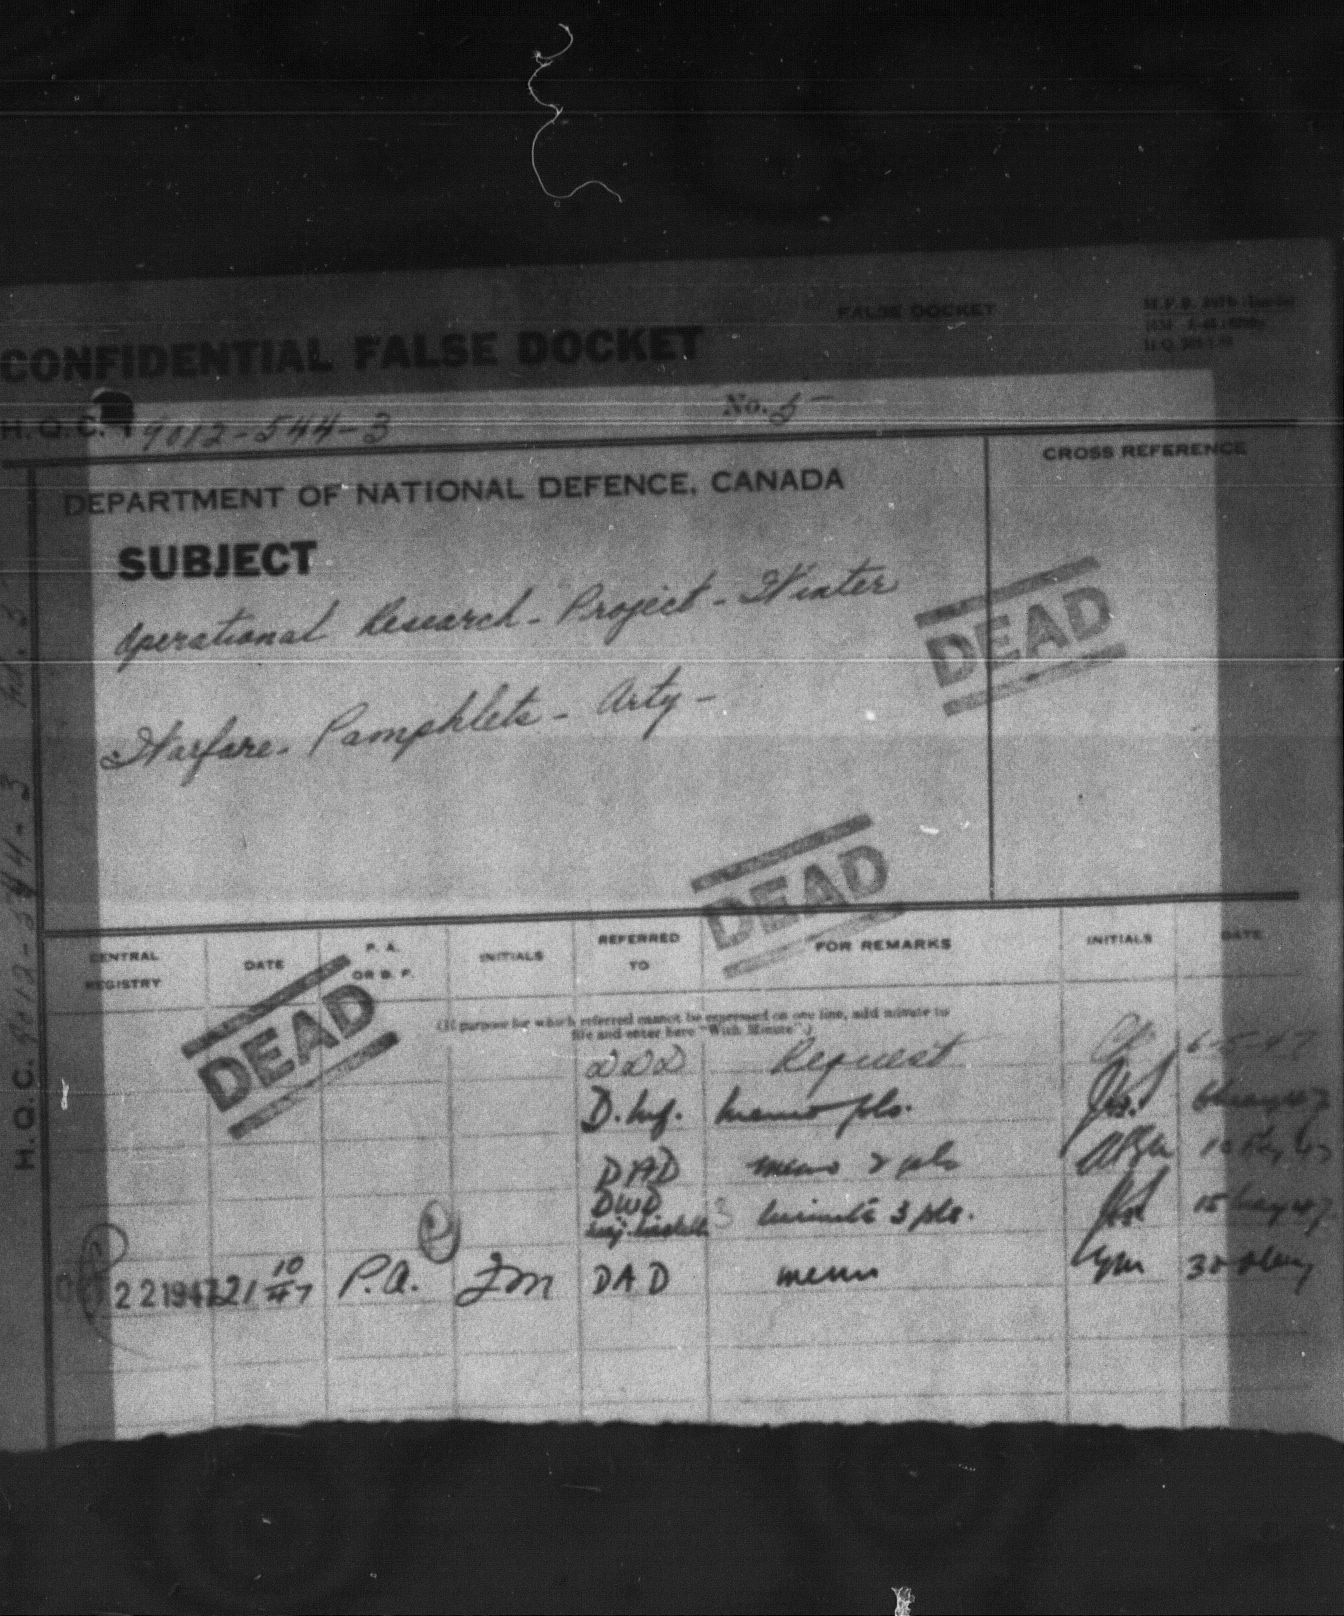 FALSE DOCKET
CONFIDENTIAL FALSE DOCKET
H.Q.C. 9012-544-3 No. 5-
DEPARTMENT OF NATIONAL DEFENCE, CANADA
CROSS REFERENCE
SUBJECT
Operational Research - Project - Winter
Warfare - Pamphlets - Arty -
DEAD
DEAD
DEAD
CENTRAL REGISTRY
DATE
P. A. OR B. F.
INITIALS
REFERRED TO
FOR REMARKS
INITIALS
DATE
(If purpose for which referred cannot be expressed on one line, add minute to
file and enter here "With Minute".)
Request 6-5-47
D. Inf. memo pls. 6 May 47
DAD memo 2 pls
DWD minute 3 pls. 15 May 47
22 1947 21 10/47 P.A. DAD memo 30 May
H.Q.C. 9012-544-3